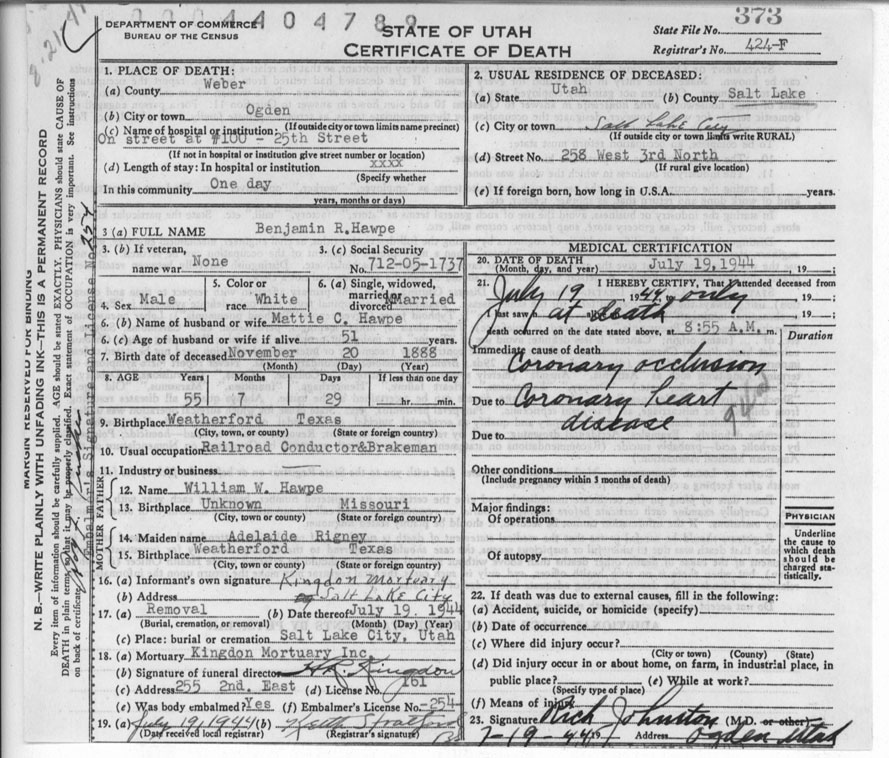 2204404789
DEPARTMENT OF COMMERCE
BUREAU OF THE CENSUS
STATE OF UTAH
CERTIFICATE OF DEATH
373
State File No.
Registrar's No. 424-F
8-21-41
MARGIN RESERVED FOR BINDING
N. B.—WRITE PLAINLY WITH UNFADING INK—THIS IS A PERMANENT RECORD
Every item of information should be carefully supplied. AGE should be stated EXACTLY. PHYSICIANS should state CAUSE OF
DEATH in plain terms, so that it may be properly classified. Exact statement of OCCUPATION is very important. See instructions
on back of certificate.
Embalmer's Signature and License No. 254
1. PLACE OF DEATH:
(a) County Weber
(b) City or town Ogden
(If outside city or town limits name precinct)
(c) Name of hospital or institution:
On street at #100 - 25th Street
(If not in hospital or institution give street number or location)
(d) Length of stay: In hospital or institution xxxx
(Specify whether
In this community One day
years, months or days)
2. USUAL RESIDENCE OF DECEASED:
(a) State Utah (b) County Salt Lake
(c) City or town Salt Lake City
(If outside city or town limits write RURAL)
(d) Street No. 258 West 3rd North
(If rural give location)
(e) If foreign born, how long in U.S.A. years.
3 (a) FULL NAME Benjamin R. Hawpe
3. (b) If veteran, name war None
3. (c) Social Security No. 712-05-1737
4. Sex Male
5. Color or race White
6. (a) Single, widowed, married, divorced Married
6. (b) Name of husband or wife Mattie C. Hawpe
6. (c) Age of husband or wife if alive 51 years.
7. Birth date of deceased November 20 1888
(Month) (Day) (Year)
8. AGE Years Months Days If less than one day
55 7 29 hr. min.
9. Birthplace Weatherford Texas
(City, town, or county) (State or foreign country)
10. Usual occupation Railroad Conductor&Brakeman
11. Industry or business
FATHER
12. Name William W. Hawpe
13. Birthplace Unknown Missouri
(City, town or county) (State or foreign country)
MOTHER
14. Maiden name Adelaide Rigney
15. Birthplace Weatherford Texas
(City, town or county) (State or foreign country)
16. (a) Informant's own signature Kingdon Mortuary
(b) Address Salt Lake City
17. (a) Removal (b) Date thereof July 19. 1944
(Burial, cremation, or removal) (Month) (Day) (Year)
(c) Place: burial or cremation Salt Lake City, Utah
18. (a) Mortuary Kingdon Mortuary Inc.
(b) Signature of funeral director H R Kingdon
(c) Address 255 2nd. East (d) License No. 161
(e) Was body embalmed? Yes (f) Embalmer's License No. -254
19. (a) July 19, 1944 (b) Keith Stratford
(Date received local registrar) (Registrar's signature)
MEDICAL CERTIFICATION
20. DATE OF DEATH
(Month, day, and year) July 19,1944, 19 ;
21. I HEREBY CERTIFY, That I attended deceased from
July 19 1944, only 19 ;
I last saw h at death 19 ;
death occurred on the date stated above, at 8:55 A.M. m.
Duration
Immediate cause of death
Coronary occlusion
Due to Coronary heart
disease
Due to
94a
Other conditions
(Include pregnancy within 3 months of death)
Major findings:
Of operations
Of autopsy
PHYSICIAN
Underline
the cause to
which death
should be
charged sta-
tistically.
22. If death was due to external causes, fill in the following:
(a) Accident, suicide, or homicide (specify)
(b) Date of occurrence
(c) Where did injury occur?
(City or town) (County) (State)
(d) Did injury occur in or about home, on farm, in industrial place, in
public place? (e) While at work?
(Specify type of place)
(f) Means of injury
23. Signature Rich Johnston (M.D. or other)
7-19-44 19 Address Ogden Utah